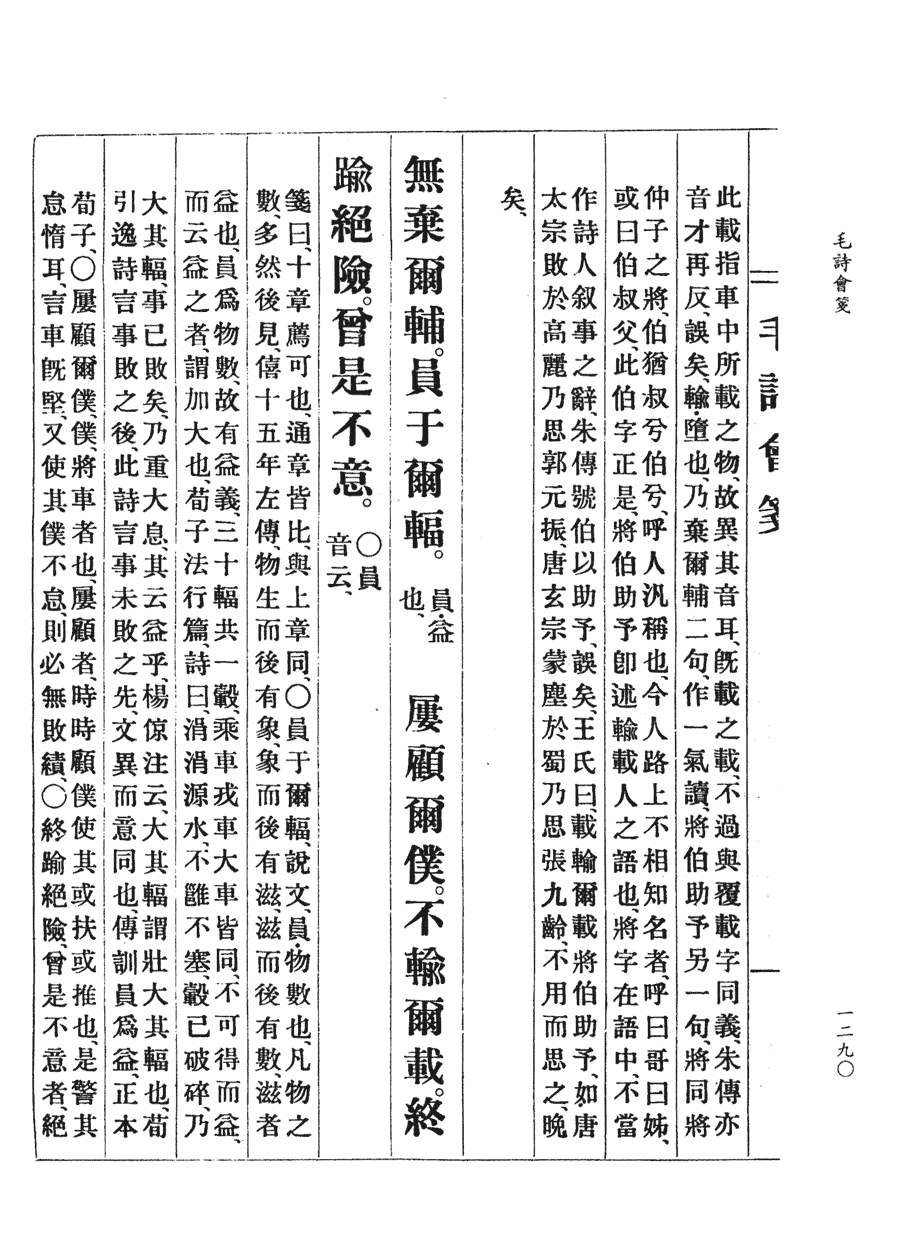 毛詩會箋
一二九〇
毛詩會箋
此載指車中所載之物、故異其音耳、旣載之載、不過與覆載字同義、朱傳亦
音才再反、誤矣、輸・墮也、乃棄爾輔二句、作一氣讀、將伯助予另一句、將同將
仲子之將、伯猶叔兮伯兮、呼人汎稱也、今人路上不相知名者、呼曰哥曰姊、
或曰伯叔父、此伯字正是、將伯助予卽述輸載人之語也、將字在語中、不當
作詩人叙事之辭、朱傳號伯以助予、誤矣、王氏曰、載輸爾載將伯助予、如唐
太宗敗於高麗乃思郭元振、唐玄宗蒙塵於蜀乃思張九齡、不用而思之、晚
矣、
無棄爾輔。員于爾輻。員・益也、屢顧爾僕。不輸爾載。終
踰絕險。曾是不意。〇員音云、
箋曰、十章薦可也、通章皆比、與上章同、〇員于爾輻、說文、員・物數也、凡物之
數、多然後見、僖十五年左傳、物生而後有象、象而後有滋、滋而後有數、滋者
益也、員爲物數、故有益義、三十輻共一轂、乘車戎車大車皆同、不可得而益、
而云益之者、謂加大也、荀子法行篇、詩曰、涓涓源水、不雝不塞、轂已破碎、乃
大其輻、事已敗矣、乃重大息、其云益乎、楊倞注云、大其輻謂壯大其輻也、荀
引逸詩言事敗之後、此詩言事未敗之先、文異而意同也、傳訓員爲益、正本
荀子、〇屢顧爾僕、僕、將車者也、屢顧者、時時顧僕使其或扶或推也、是警其
怠惰耳、言車旣堅、又使其僕不怠、則必無敗績、〇終踰絕險、曾是不意者、絕